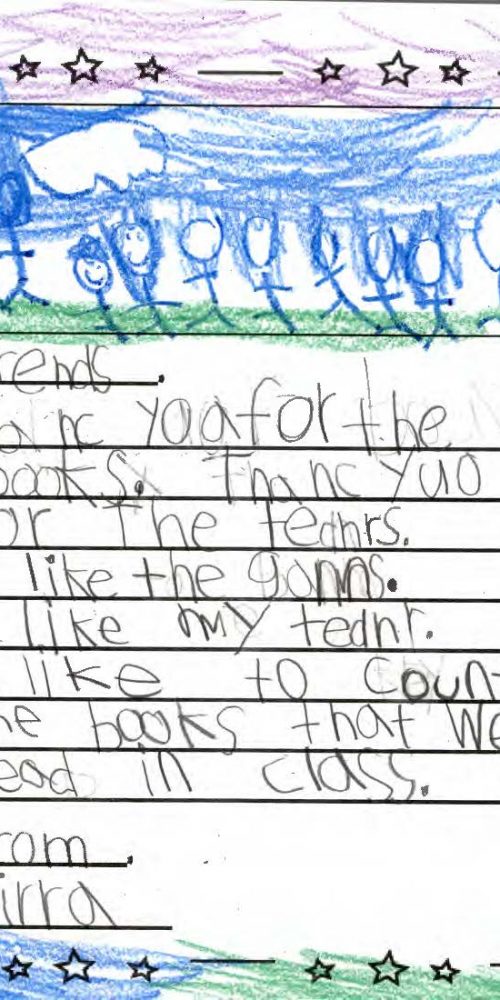 rends.
anc yoafor the
books. Thanc yuo
or The teahrs.
like the gonns.
like my teahr.
like to count
he books that we
ead in class.
rom.
irra